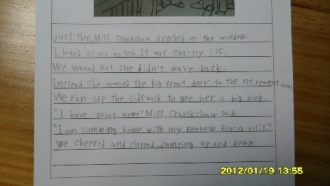 Just then, Miss Chankshaw knocked on the window.
I looked at my watch. It was exactly 1:15.
We waved, but she didn't wave back.
Instead she opened the big front door to the retirement home
We ran up the sidewalk to give her a big hug.
"I have great news" Miss Chankshaw said.
"I am comming home with my nephew for a visit."
We cheered and clapped, jumping up and down
2012/01/19 13:55